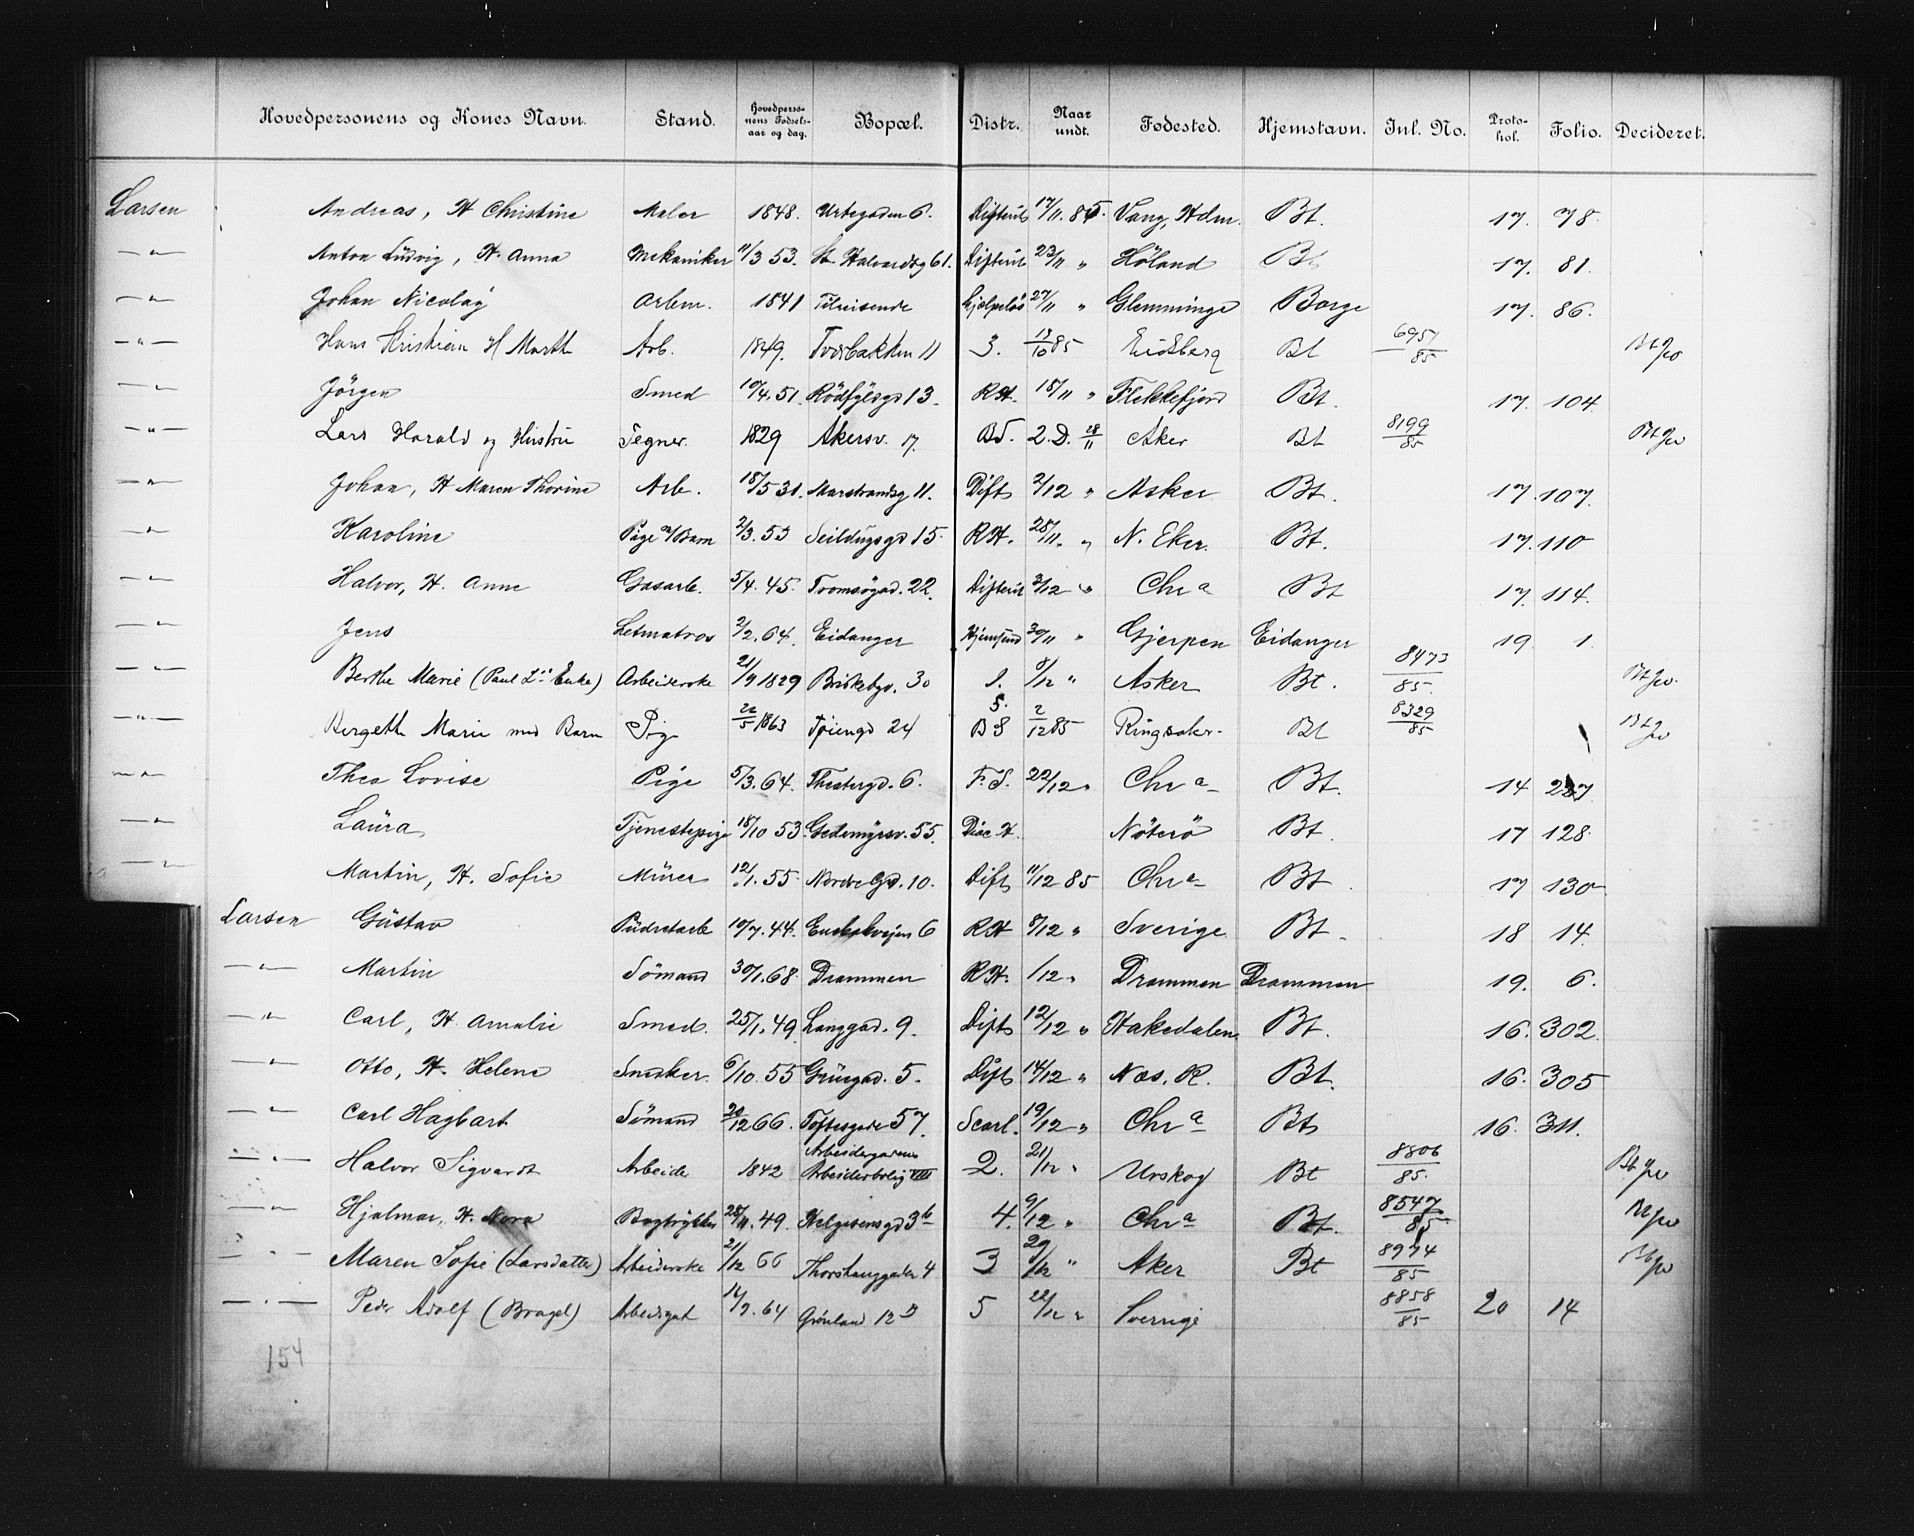 Hovedpersonens og Kones Navn. Stand. Hovedpersonens Fødselsaar og dag. Bopæl. Distr. Naar undt. Fødested. Hjemstavn. Inl. No. Protohol. Folio. Decideret.
Larsen Andreas, H Christine Maler 1848. Urtegaden 6. 17/11. 85. Vang, Hdm. Bt. 17. 78.
—"— Anton Ludvig, H. Anna Mekaniker 11/3 53. St. Halvardsg 61. 23/11 " Höland Bt 17. 81.
—"— Johan Nicolay Arbm. 1841 Tilreisende Hjælpeløs 27/11 " Glemminge Borge 17. 86.
—"— Hans Kristian H Marth Arb. 1849. 11 3. 13/10 85 Eidsberg Bt 6957/85
—"— Jörgen Smed 10/4. 51. 13. RH. 18/11 " Flekkefjord Bt. 17. 104.
—"— Lars Harald og Segner 1829 Akersv. 17. BS. 2. D. 28/11 Aker Bt 8199/85
—"— Johan, H Maren Thorine Arb. 18/5 31. Marstrandsg 11. Dift 2/12 " Asker Bt. 17. 107.
—"— Karoline Pige m/Barn 2/3. 53 Seildugsgd 15. RH. 28/11. " N. Eker. Bt. 17. 110
—"— Halvor, H. Anne Gasarb. 5/4. 45. Tromsögad. 22. 3/12 " Chra Bt 17. 114.
—"— Jens Letmatros 2/2. 64. Eidanger 30/11 " Gjerpen Eidanger 19. 1.
—"— Berthe Marie (Paul Ls Enke) Arbeiderske 21/9 1829 Briskebyv. 30 1. 8/12 " Asker Bt. 8473/85.
—"— Bergeth Marie med Barn Pige 22/5 1863 Tøiengd 24 5. BS 2/12 85 Ringsaker. Bt 8329/85
—"— Thea Lovise Pige 5/3. 64. Theatergd. 6. F. S. 22/12 " Chra Bt. 14 287
—"— Laura Tjenestepige 18/10 53. Gedemyrsv. 55. Diac H. Nöterö Bt. 17 128
—"— Martin, H. Sofie Mürer 12/1. 55 Nordre Gd. 10. Dift 11/12 85 Chra Bt. 17 130
Larsen Güstav Püdretarb 10/7. 44. 6 RH 8/12 " Sverige Bt. 18 14.
—"— Martin Sömand 30/1. 68. Drammen RH. 1/12 " Drammen Drammen 19. 6.
—"— Carl, H. Amalie Smed. 25/1. 49. Langgad. 9. Dift 12/12 " Hakedalen Bt. 16. 302.
—"— Otto, H. Helene Snedker. 6/10. 55 Grüsgad. 5. Dift 14/12 " Næs, R. Bt. 16. 305
—"— Carl Hagbart Sömand 20/12 66. Toftesgade 57. Scarl. 19/12 " Chra Bt 16. 311.
—"— Halvor Sigvardt Arbeider 1842 Arbeidergadens Arbeiderbolig VIII 2. 21/12 " Urskog Bt 8806/85.
—"— Hjalmar, H. Nora Bogtrykker 28/11. 49. Helgesensgd 3b 4. 9/12 " Chra Bt. 8547/85
—"— Maren Sofie (Larsdatter) Arbeiderske 21/12 66 Thorshauggaden 4 3 29/12 " Aker Bt 8974/85
—"— Peder Adolf (Bragel) Arbeidsgut 64 Grønland 12 5 22/12 " Sverrige 8858/85 20 14
154